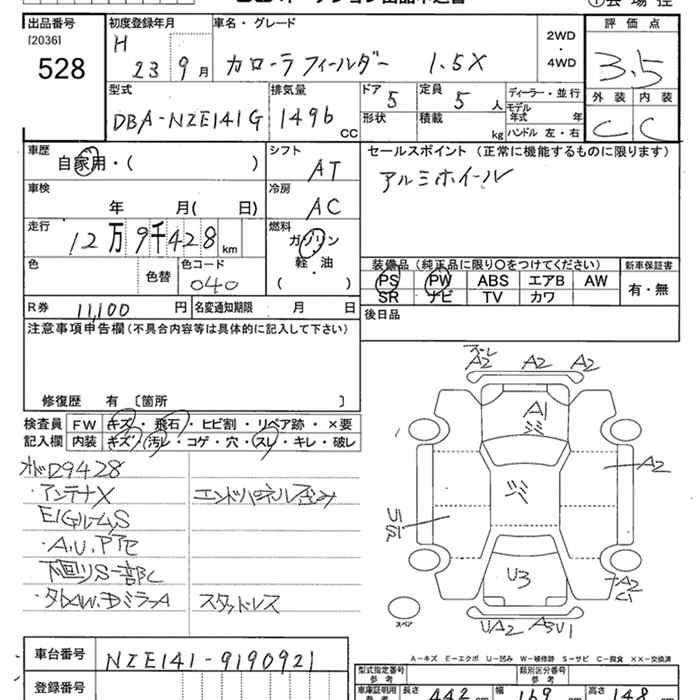 出品番号 初度登録年月 車名・グレード 2WD 評価点
[2036] H ・ 3.5
528 23 9月 カローラフィールダー 1.5X 4WD
型式 排気量 ドア 5 定員 5人 ディーラー・並行 外装 内装
DBA-NZE141G 1496 CC 形状 積載 kg モデル年式 年 C C
ハンドル 左・右
車歴 シフト セールスポイント (正常に機能するものに限ります)
自家用・( ) AT アルミホイール
車検 冷房
年 月( 日) AC
走行 燃料
12万9千428km ガソリン
軽・油
( )
色 色替 色コード 装備品 (純正品に限り○をつけてください) 新車保証書
040 PS PW ABS エアB AW 有・無
SR ナビ TV カワ
R券 11,100円 名変通知期限 月 日 後日品
注意事項申告欄(不具合内容等は具体的に記入して下さい)
修復歴 有 [箇所 ]
検査員 FW キズ・飛石・ヒビ割・リペア跡・×要
記入欄 内装 キズ・汚レ・コゲ・穴・スレ・キレ・破レ
129428
・アンテナX エンドパネル歪み
・A.U.P
下回りS一部C
スタッドレス
A2 A2 A2
A1
A2
U1
S1
U3
A2
C1
スペア UA2
A-キズ E-エクボ U-凹み W-補修跡 S-サビ C-腐食 XX-交換済
車台番号 NZE141-9190921
登録番号
型式指定番号 参考 類別区分番号 参考
車庫証明用 参考 長さ 442 幅 169 高さ 148